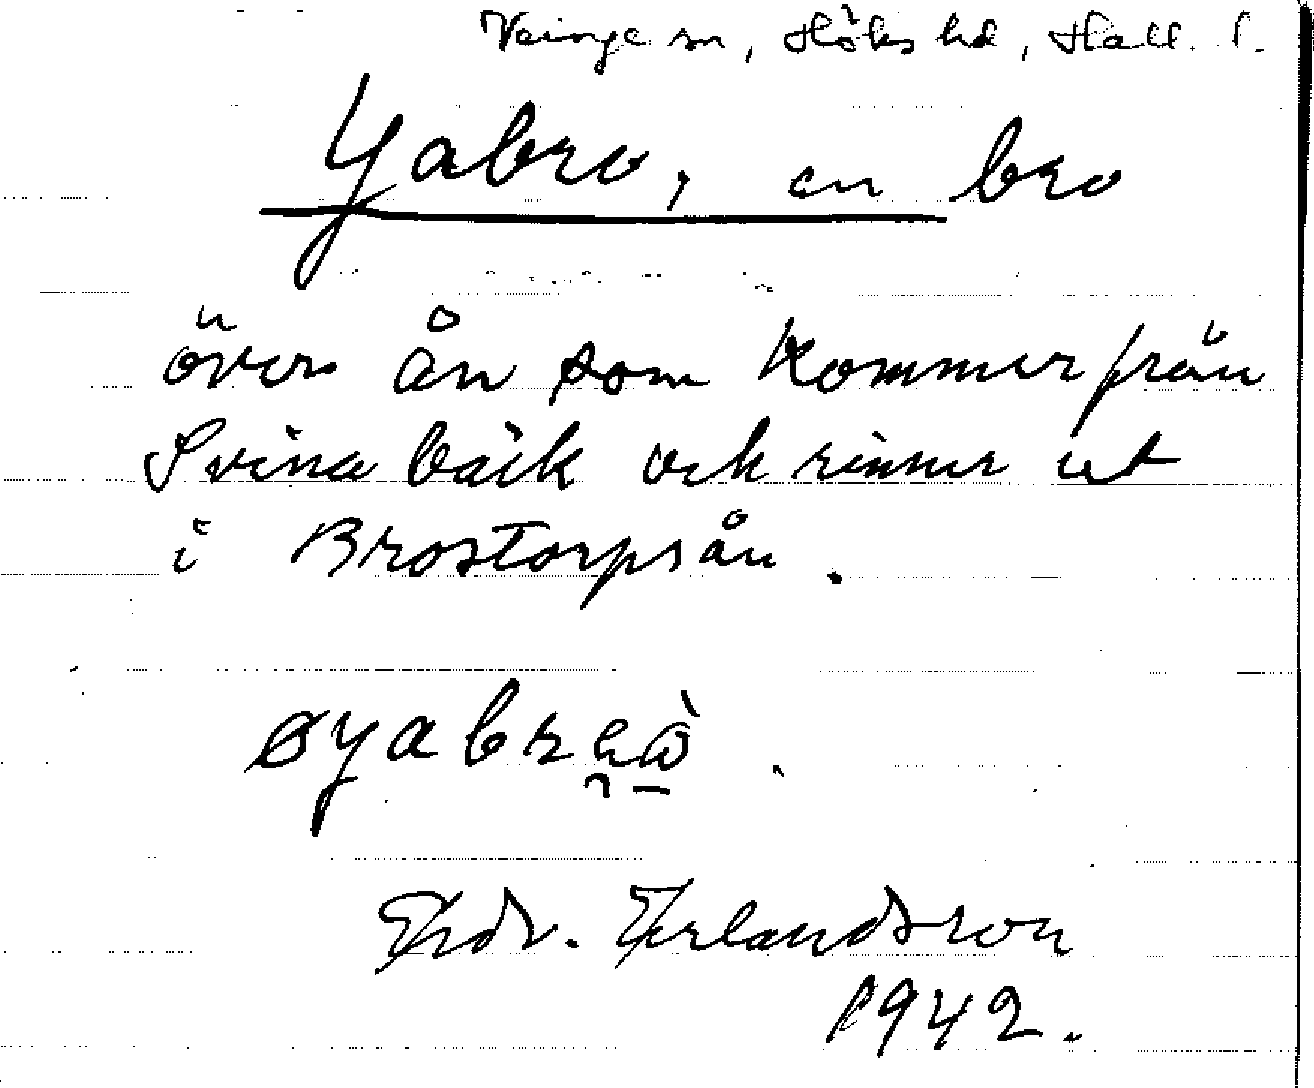 Veinge sn, Höks hd, Hall. l.
Yabro, en bro
över ån som kommer från
Svinabäck och rinner ut
i Brostorpsån.
Erdv. Erlandsson
1942.